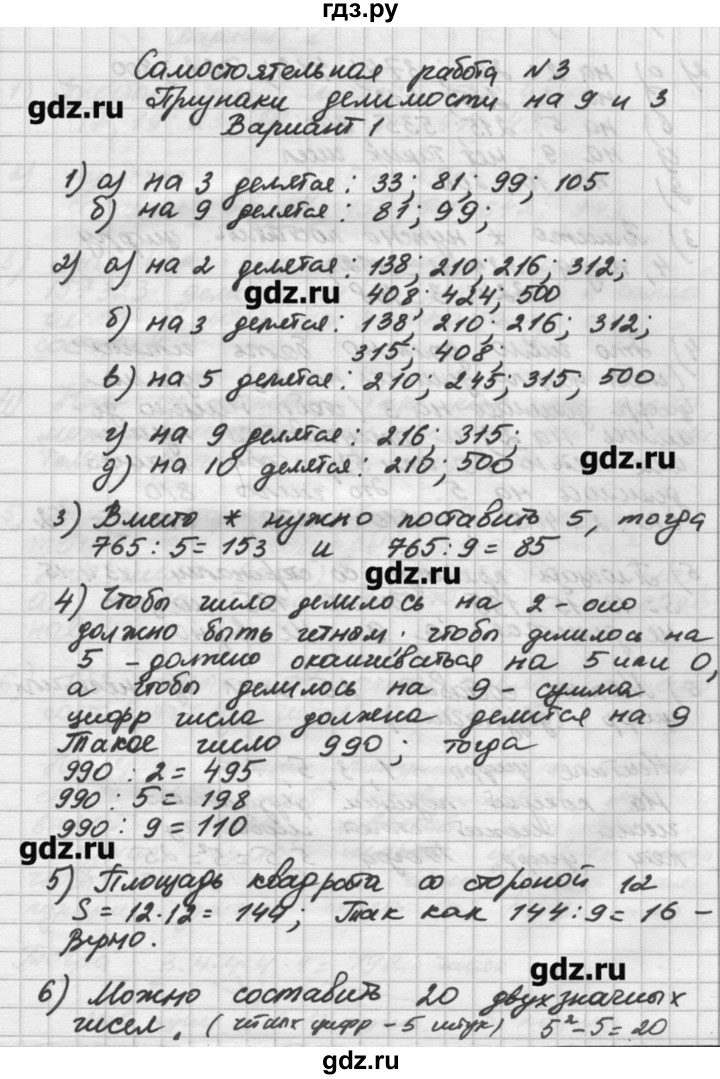 гдз.ру
Самостоятельная работа №3
gdz.ru
Признаки делимости на 9 и 3
Вариант 1
1) а) на 3 делятся: 33; 81; 99; 105
б) на 9 делятся: 81; 99;
2) а) на 2 делятся: 138; 210; 216; 312;
gdz.ru
408; 424; 500
б) на 3 делятся: 138; 210; 216; 312;
315; 408;
в) на 5 делятся: 210; 245; 315; 500
г) на 9 делятся: 216; 315;
gdz.ru
д) на 10 делятся: 210; 500
3) Вместо * нужно поставить 5, тогда
765 : 5 = 153 и 765 : 9 = 85
gdz.ru
4) Чтобы число делилось на 2 - оно
должно быть четным, чтобы делилось на
5 - должно оканчиваться на 5 или 0,
а чтобы делилось на 9 - сумма
цифр числа должна делится на 9
Такое число 990; тогда
990 : 2 = 495
990 : 5 = 198
990 : 9 = 110
gdz.ru
5) Площадь квадрата со стороной 12
S = 12·12 = 144; Так как 144 : 9 = 16 -
Верно.
gdz.ru
6) Можно составить 20 двухзначных
чисел. (четных цифр - 5 штук) 5² - 5 = 20
gdz.ru